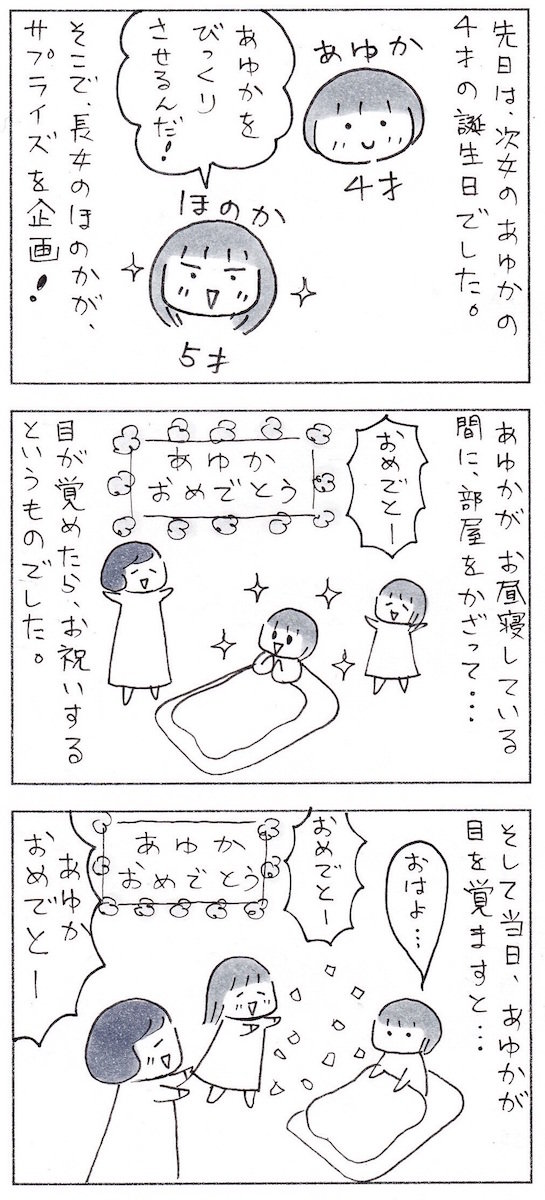 先日は、次女のあゆかの
4才の誕生日でした。
あゆか
4才
あゆかを
びっくり
させるんだ!
ほのか
5才
そこで、長女のほのかが、
サプライズを企画!
あゆかが お昼寝している
間に、部屋をかざって・・・
おめでとー
あゆか
おめでとう
目が覚めたら、お祝いする
というものでした。
そして当日、あゆかが
目を覚ますと・・・
おはよ…
おめでとー
あゆか
おめでとう
あゆか
おめでとー